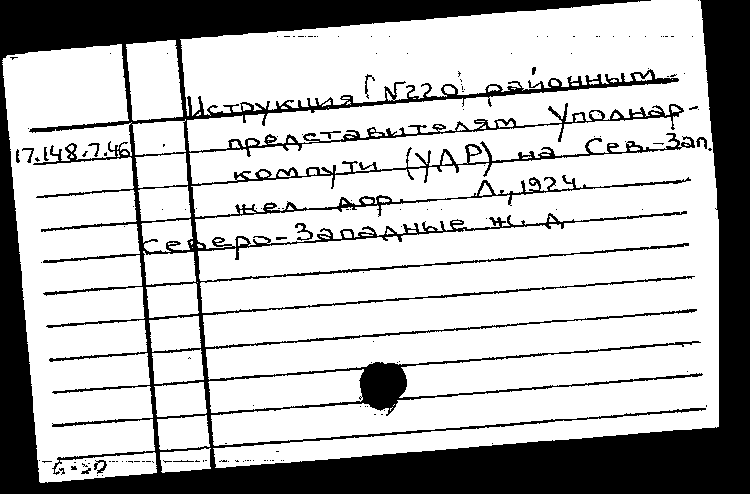 Иструкция (№220) районным
17.148.7.46 представителям Уполнар-
компути (УДР) на Сев.-Зап.
жел. дор. Л., 1924.
Северо-Западные ж. д.
6-50